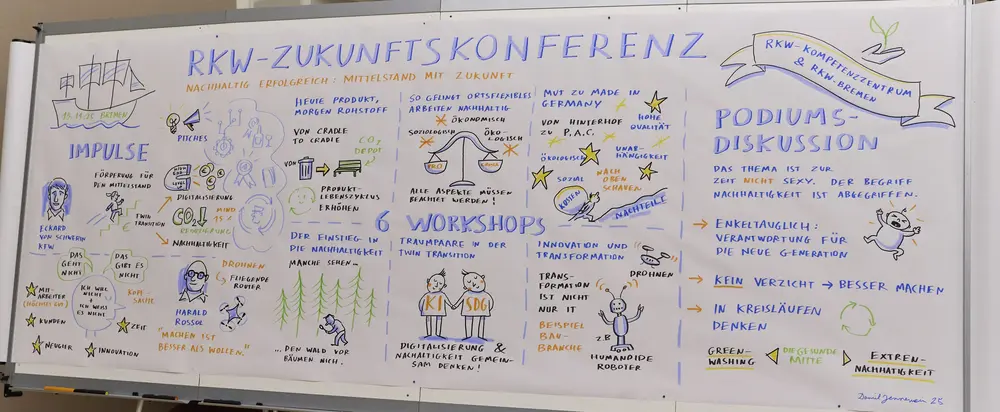 RKW-ZUKUNFTSKONFERENZ
NACHHALTIG ERFOLGREICH: MITTELSTAND MIT ZUKUNFT
13.11.25 BREMEN
IMPULSE
PITCHES
FÖRDERUNG FÜR
DEN MITTELSTAND
TWIN
TRANSITION
ECKARD
VON SCHWERIN
KFW
DIGITALISIERUNG
CO₂
MIND.
15 %
NACHHALTIGKEIT
DAS
GEHT
NICHT
DAS
GIBT ES
NICHT
ICH WILL
NICHT
ICH WEISS
ES NICHT
KOPF-
SACHE
MIT-
ARBEITER
KUNDEN
NEUGIER
ZEIT
INNOVATION
DROHNEN
FLIEGENDE
ROUTER
HARALD
ROSSOL
"MACHEN IST
BESSER ALS WOLLEN."
HEUTE PRODUKT,
MORGEN ROHSTOFF
VON CRADLE
TO CRADLE
CO₂
DEPOT
VON
ZU
PRODUKT-
LEBENSZYKLUS
ERHÖHEN
SO GELINGT ORTSFLEXIBLES
ARBEITEN NACHHALTIG
ÖKONOMISCH
SOZIOLOGISCH
ÖKO-
LOGISCH
ALLE ASPEKTE MÜSSEN
BEACHTET WERDEN!
MUT ZU MADE IN
GERMANY
VON HINTERHOF
ZU P.A.C.
HOHE
QUALITÄT
ÖKOLOGISCH
UNAB-
HÄNGIGKEIT
SOZIAL
NACH
OBEN
SCHAUEN
KOSTEN
NACHTEILE
6 WORKSHOPS
DER EINSTIEG IN
DIE NACHHALTIGKEIT
MANCHE SEHEN...
...DEN WALD VOR
BÄUMEN NICH.
TRAUMPAARE IN DER
TWIN TRANSITION
KI
SDG
DIGITALISIERUNG &
NACHHALTIGKEIT GEMEIN-
SAM DENKEN!
INNOVATION UND
TRANSFORMATION
DROHNEN
TRANS-
FORMATION
IST NICHT
NUR IT
BEISPIEL
BAU-
BRANCHE
Z.B
HUMANOIDE
ROBOTER
RKW-KOMPETENZZENTRUM
& RKW-BREMEN
PODIUMS-
DISKUSSION
DAS THEMA IST ZUR
ZEIT NICHT SEXY. DER BEGRIFF
NACHHALTIGKEIT IST ABGEGRIFFEN.
→ ENKELTAUGLICH:
VERANTWORTUNG FÜR
DIE NEUE GENERATION
→ KEIN VERZICHT → BESSER MACHEN
→ IN KREISLÄUFEN
DENKEN
GREEN-
WASHING
DIE GESUNDE
MITTE
EXTREM-
NACHHALTIGKEIT
25